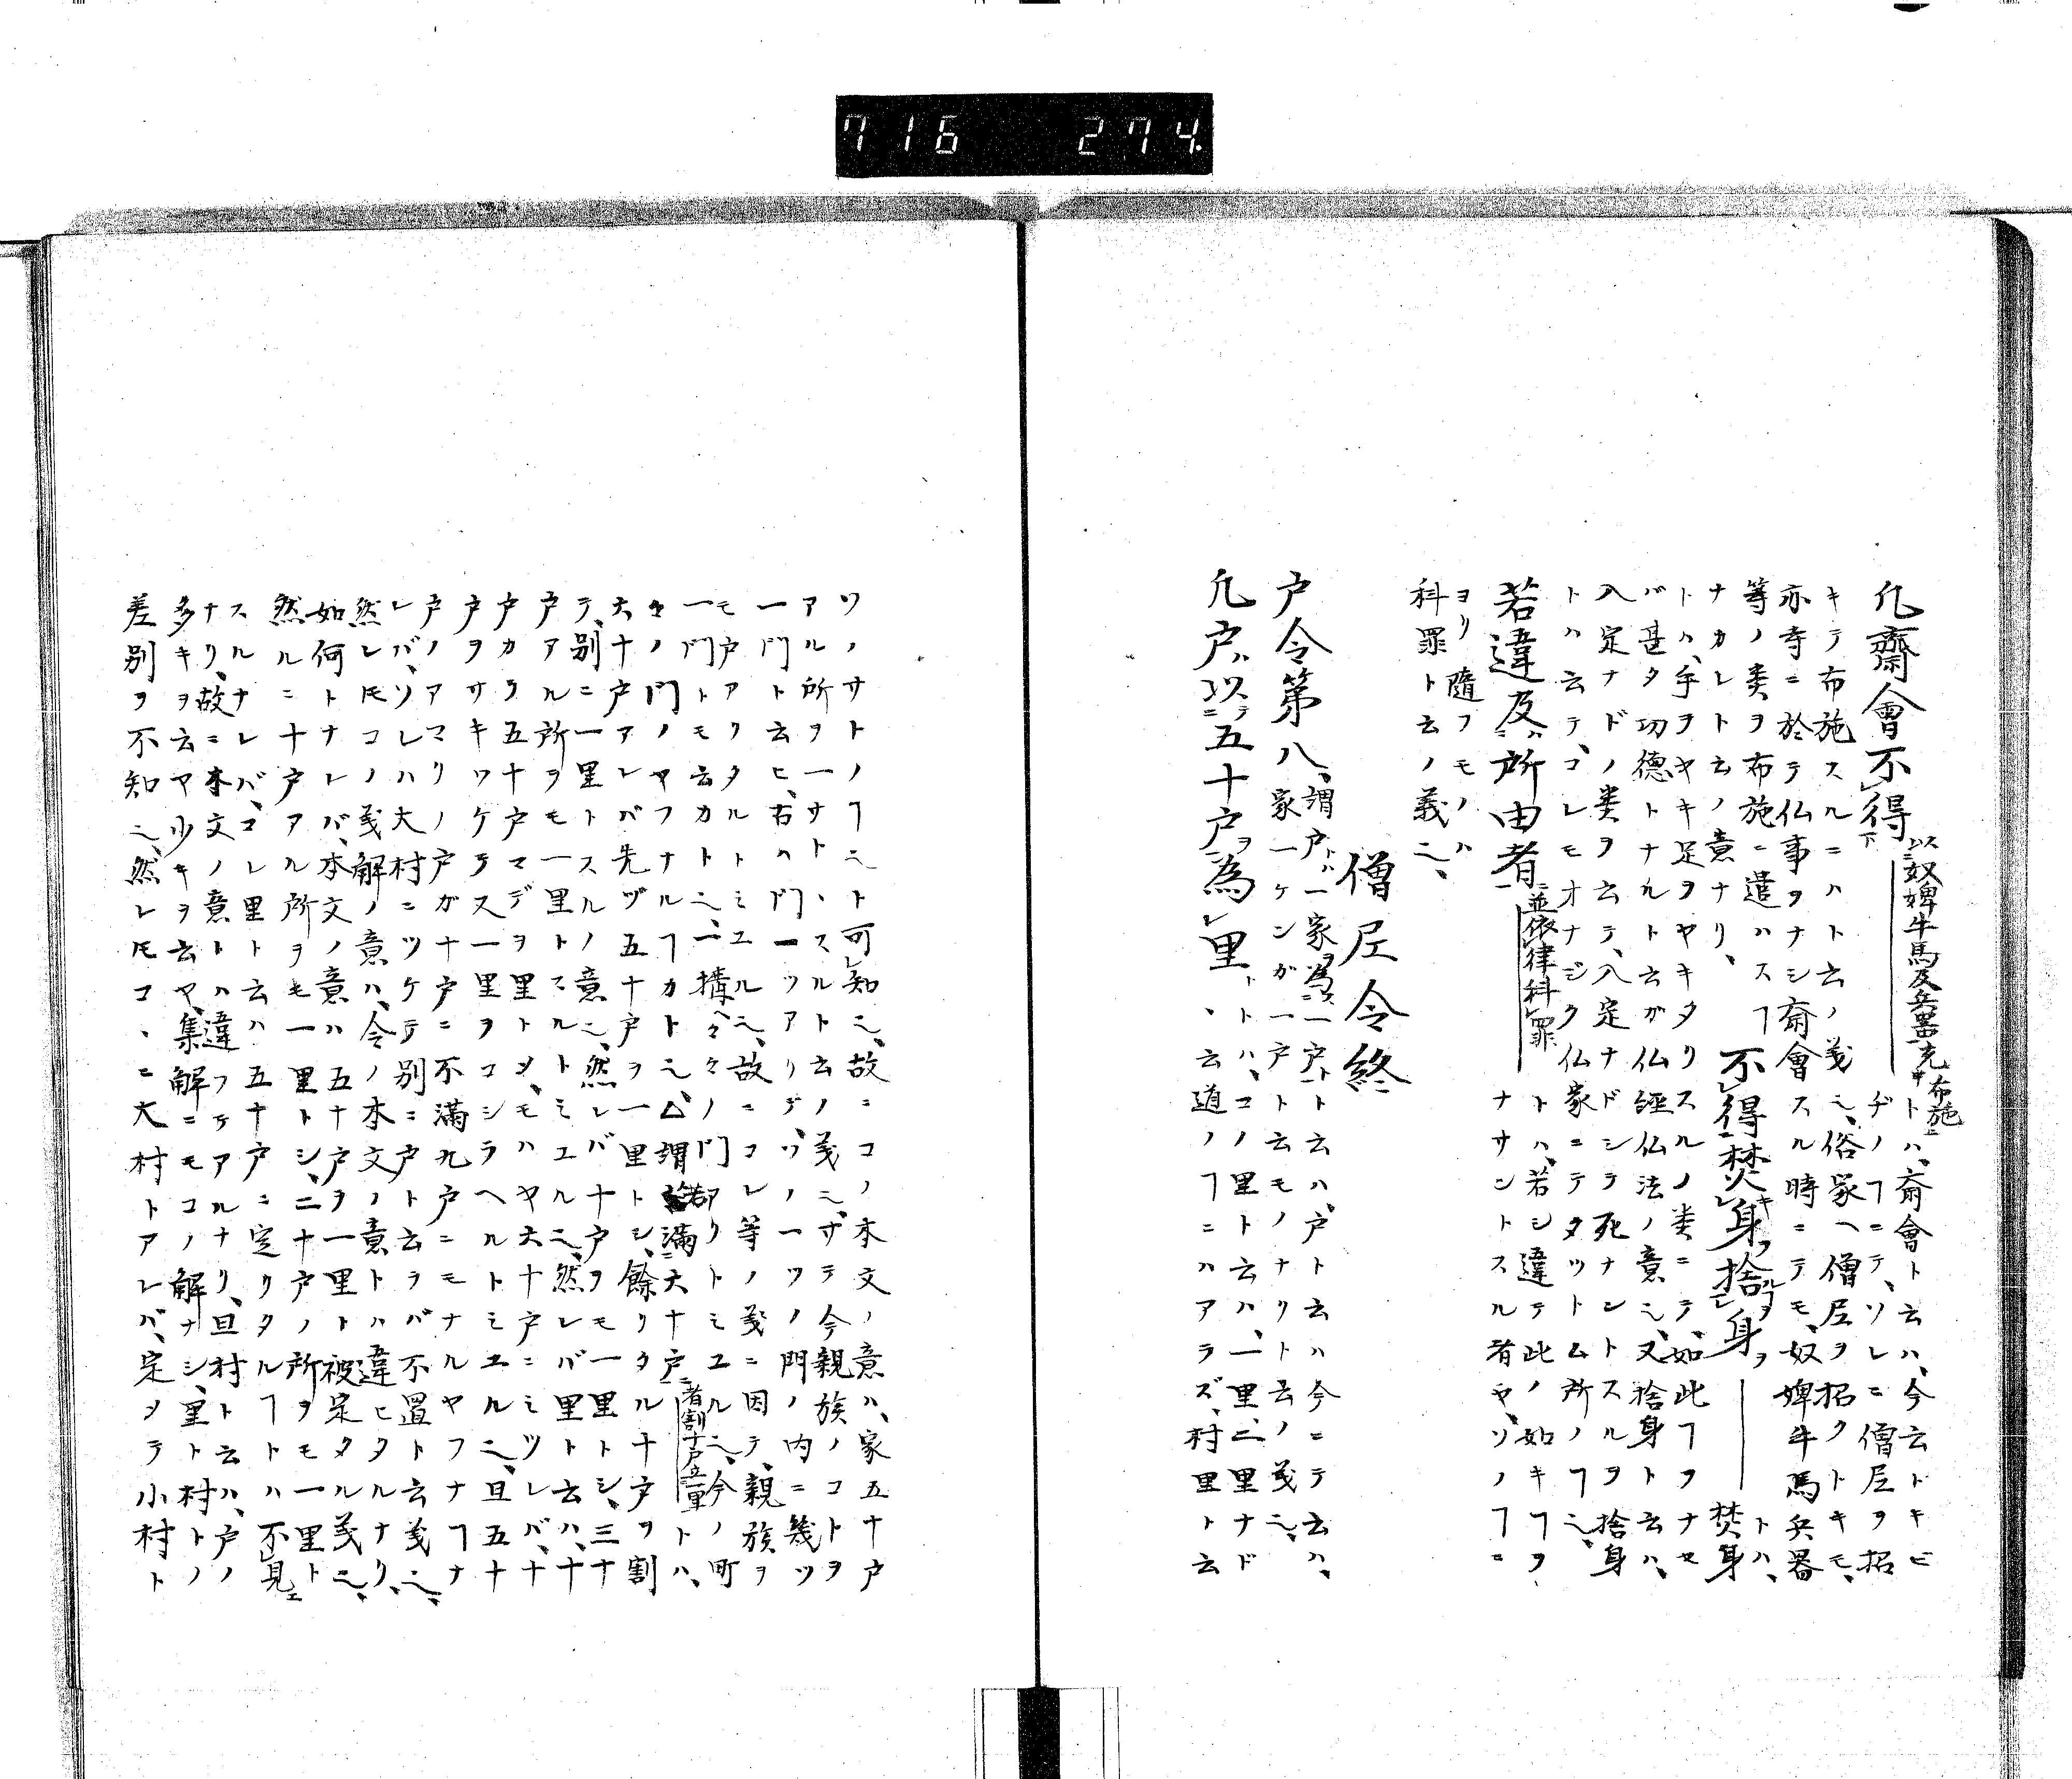 716 274.
凡齋會不得下以奴婢牛馬及兵器充布施
トハ、斎會ト云ハ、今云トキビ
ヂノヿニテ、ソレニ僧尼ヲ招
キテ布施スルニハト云ノ義也、俗家ヘ僧尼ヲ招クトキモ、
亦寺ニ於テ仏事ヲナシ斎會スル時ニテモ、奴婢牛馬兵器
等ノ類ヲ布施ニ遣ハスヿ
ナカレト云ノ意ナリ、
不得焚キ身ヲ捨ルヿヲ身ヲ
トハ、焚身
トハ、手ヲヤキ足ヲヤキタリスルノ類ニテ、如此ヿヲナセ
バ甚タ功徳トナルト云ガ仏経仏法ノ意也、又捨身ト云ハ、
入定ナドノ類ヲ云テ、入定ナドシテ死ナントスルヲ捨身
トハ云テ、コレモオナジク仏家ニテタツトム所ノヿ也、
若違及ハ所由者ニ並依律科罪
トハ、若シ違テ此ノ如キヿヲ
ナサントスル者ヤ、ソノヿニ
ヨリ隨フモノハ
科罪ト云ノ義也、
僧尼令終
戸令第八、謂戸トハ一家ヲ為ス一戸ト
ト云ハ、戸ト云ハ今ニテ云ハ、
家一ケンガ一戸ト云モノナリト云ノ義也、
凡戸ハ以ニテ五十戸ヲ為レ里ト
トハ、コノ里ト云ハ、一里二里ナド
、云道ノヿニハアラズ、村里ト云
ソノサトノヿ也ト可知也、故ニコノ本文ノ意ハ、家五十戸
アル所ヲ一サト、スルト云ノ義也、サテ今親族ノコトヲ
一門ト云ヒ、右ハ門一ツアリテ、ソノ一ツノ門ノ内ニ幾ツ
モ戸アリタルトミユル也、故ニコレ等ノ義ニ因テ、親族ヲ
一門トモ云カト也、一構ヘ々々ノ門都リトミユル也、今ノ町
々ノ門ノヤフナルヿカト也、△謂満六十戸ニ者割十戸立一里
トハ、
六十戸アレバ先ヅ五十戸ヲ一里トシ、餘リタル十戸ヲ割
テ、別ニ一里トスルノ意也、然レバ十戸ヲモ一里トシ、三十
戸アル所ヲモ一里トスルトミユル也、然レバ里ト云ハ、十
戸カラ五十戸マデヲ里トメ、モハヤ六十戸ニミツレバ、十
戸ヲサキワケテス一里ヲコシラヘルトミエル也、且五十
戸ノアマリノ戸ガ十戸ニ不満九戸ニモナルヤフナヿナ
レバ、ソレハ大村ニツケテ別ニ戸ト云ラバ不置ト云義也、
然レ𪜈コノ義解ノ意ハ、令ノ本文ノ意トハ違ヒタルナリ、
如何トナレバ、本文ノ意ハ五十戸ヲ一里ト被定タル義也、
然ルニ十戸アル所ヲモ一里トシ、二十戸ノ所ヲモ一里ト
スルナレバ、コレ里ト云ハ五十戸ニ定リタルヿトハ不見ヱ
ナリ、故ニ本文ノ意トハ違フテアルナリ、且村ト云ハ、戸ノ
多キヲ云ヤ少キヲ云ヤ、集解ニモコノ解ナシ、里ト村トノ
差別ヲ不知也、然レ𪜈コヽニ大村トアレバ、定ヲテ小村ト